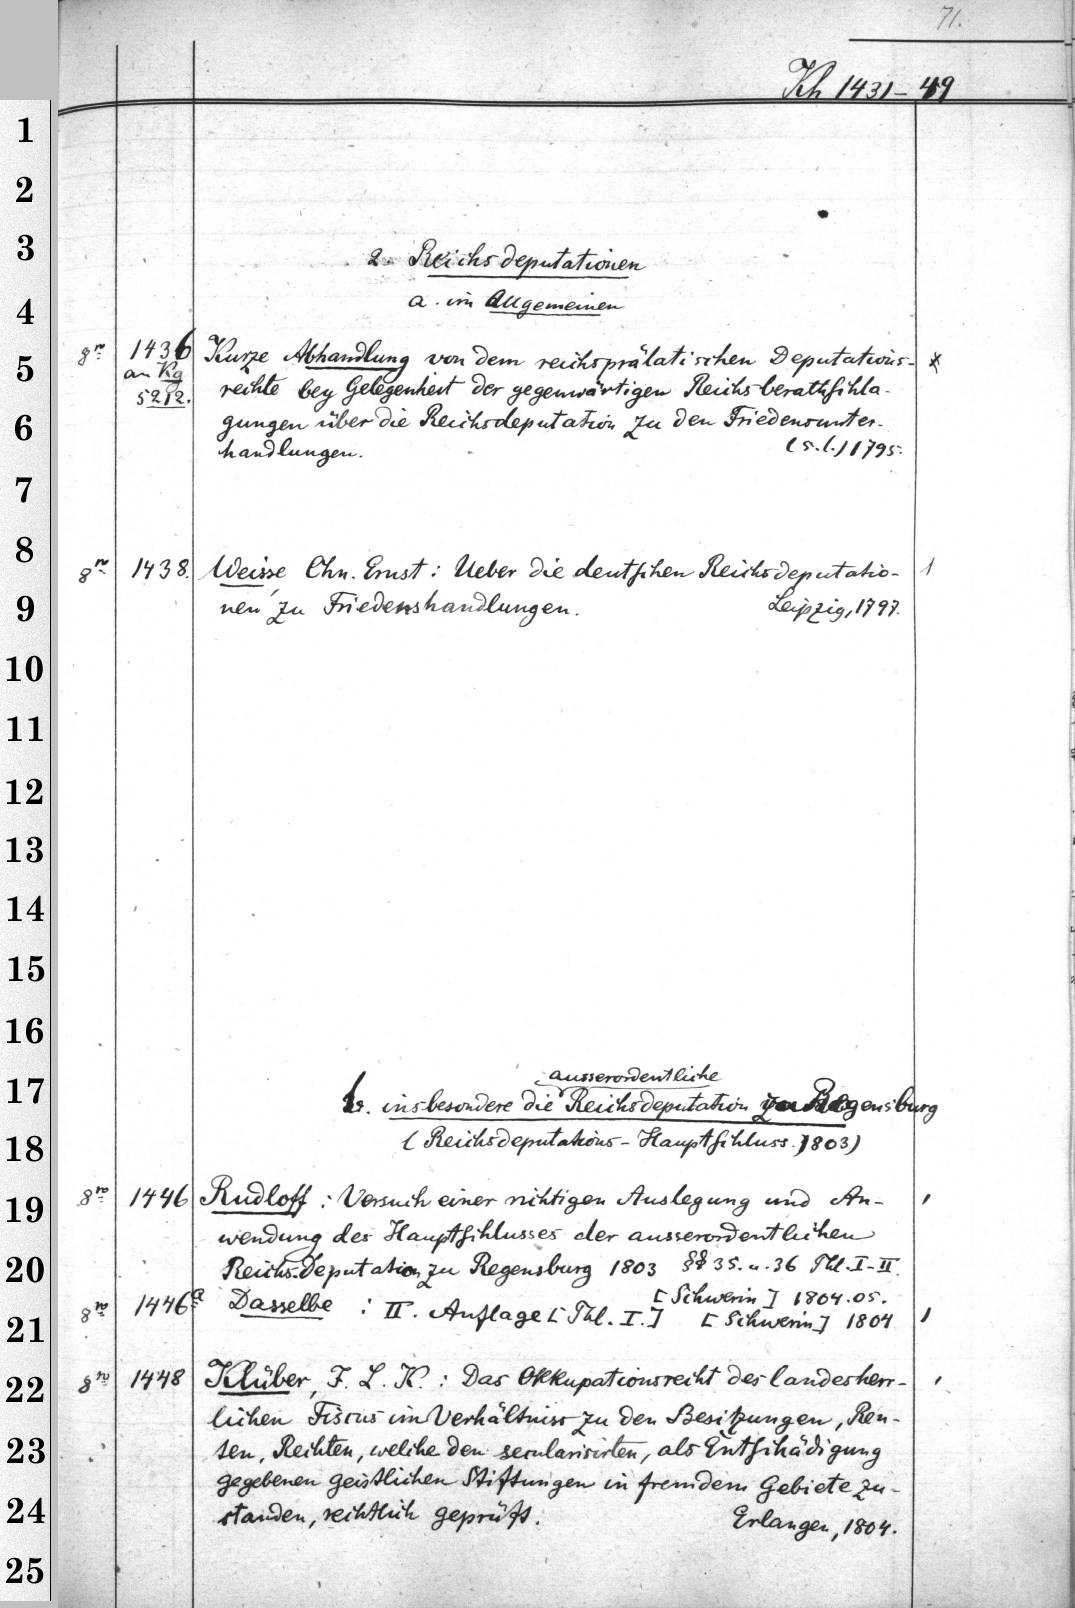 71.
Kh 1431-49
2. Reichsdeputationen
a. im Allgemeinen
8° 1436 Kurze Abhandlung von dem reichsprälatischen Deputations- x
an Kg rechte bey Gelegenheit der gegenwärtigen Reichsberathschla-
5212. gungen über die Reichsdeputation zu den Friedensunter-
handlungen. (s.l.) 1795.
8° 1438. Weisse, Chn. Ernst: Ueber die deutschen Reichsdeputatio- 1
nen zu Friedenshandlungen. Leipzig, 1797.
ausserordentliche
b. insbesondere die Reichsdeputation zu Regensburg
(Reichsdeputations-Hauptschluss. 1803)
8° 1446 Rudloff: Versuch einer richtigen Auslegung und An- '
wendung des Hauptschlusses der ausserordentlichen
Reichs-Deputation zu Regensburg 1803 §§ 35. u. 36 Thl. I-II.
[Schwerin] 1804.05.
8° 1446a Dasselbe: II. Auflage [Thl. I.] [Schwerin] 1804 '
8° 1448 Klüber, F. L. K.: Das Okkupationsrecht des landesherr- '
lichen Fiscus im Verhältniss zu den Besitzungen, Ren-
ten, Rechten, welche den secularisirten, als Entschädigung
gegebenen geistlichen Stiftungen in fremdem Gebiete zu-
standen, rechtlich geprüft. Erlangen, 1804.
1
2
3
4
5
6
7
8
9
10
11
12
13
14
15
16
17
18
19
20
21
22
23
24
25